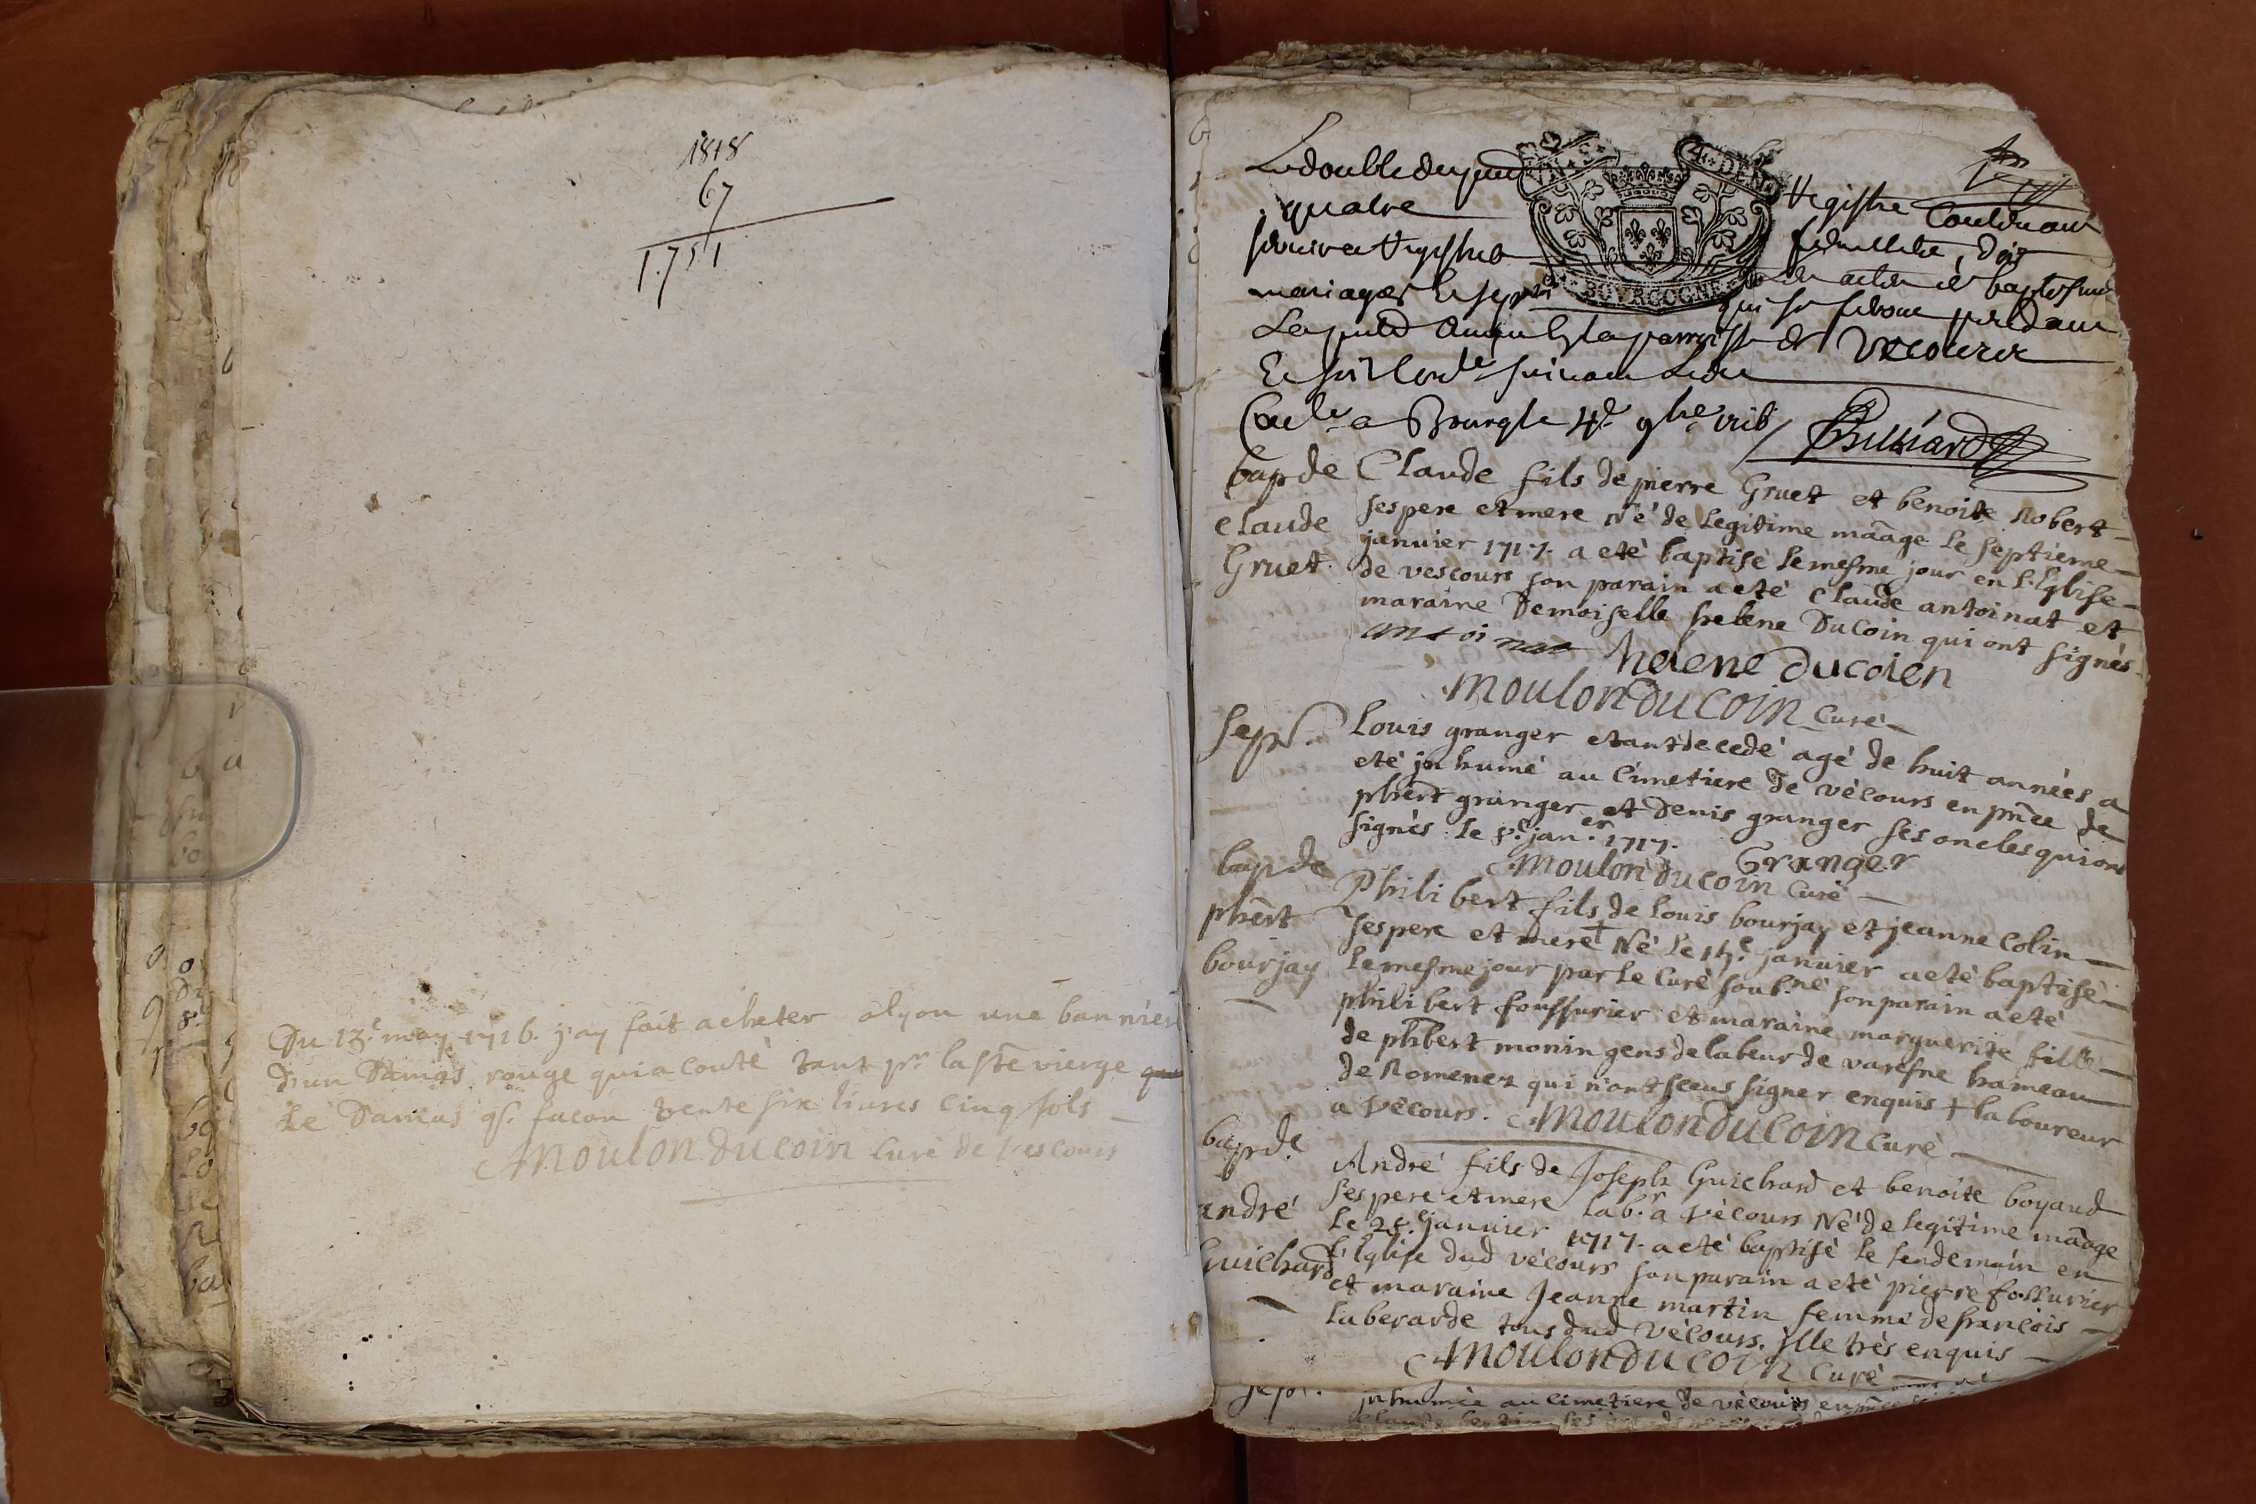 1818
67
1.751
Du 13e may 1716. j'ay fait acheter a lyon une bannière
d'un Damas rouge qui a couté tant pr. la ste vierge que
le Damas gs. facon trente six livres cinq sols
Moulon Ducoin curé de Vescours
Le double du pnt registre contenant
quatre feuillets, doit
servir a registre les actes de baptesmes
mariages et sepres qui se feront pendant
en la parroisse de Vecours
Et suivant
a Bourg le 4e 9bre
bap de Claude fils de pierre Gruet et benoite Robert
claude ses pere et mere Né de Legitime mãage le septieme
Gruet. janvier 1717. a eté baptisé le mesme jour en l'Eglise
de vescours son parain a eté claude antoinat et
maraine Demoiselle helene Ducoin qui ont signés
antoinat helene ducoien
Moulon Ducoin Curé
sepr. Louis granger etant decedé agé de huit années a
eté jnhumé au Cimetiere de vécours en pñce de
phert granger et Denis granger ses oncles qui ont
signés. le 8e janer. 1717.
Granger
Moulon Ducoin Curé
bap de Philibert fils de Louis bourjay et jeanne Colin
phert ses pere et mere + Né Le 15e. janvier a eté baptisé
bourjay Le mesme jour par Le Curé soub.né son parain a eté
philibert foussurier et maraine marguerite fille
de phbert monin gens de labeur de varesne hameau
de Romenez qui n'ont sceus signer enquis + laboureur
a Vécours. Moulon Ducoin Curé
bap d.e André fils de Joseph Guichard et benoite boyaud
andré ses pere et mere lab.r a Vécours Né de legitime mãage
Guichard Le 28e janvier 1717. a eté baptisé le lendemain en
l'Eglise dud Vécours son parain a eté pierre fossurier
et maraine Jeanne martin femme de françois
laberarde tous dud Vécours. Jlle très enquis
Moulon Ducoin Curé
sepr. jnhumée au Cimetiere de vécours en